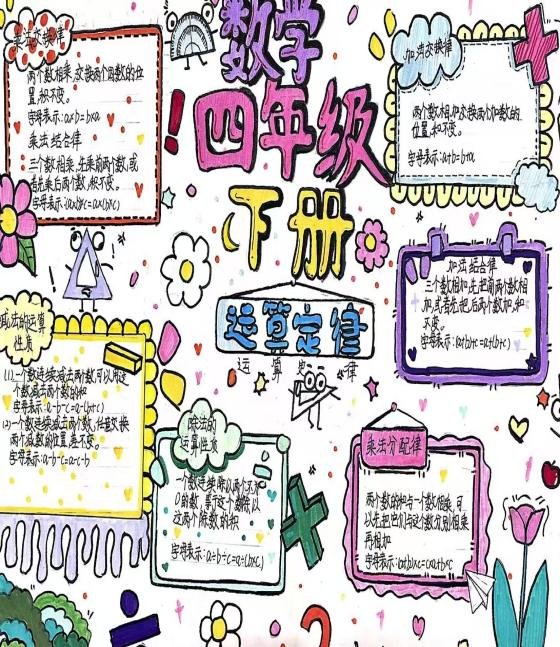 数学
四年级
下册
运算定律
运 算 定 律
乘法交换律
两个数相乘,交换两个因数的位
置,积不变。
字母表示:a×b=b×a
乘法结合律
三个数相乘,先乘前两个数,或
者先乘后两个数,积不变。
字母表示:(a×b)×c=a×(b×c)
加法交换律
两个数相加,交换两个加数的
位置,和不变。
字母表示:a+b=b+a
加法结合律
三个数相加,先把前两个数相
加,或者先把后两个数加,和
不变。
字母表示:(a+b)+c=a+(b+c)
减法的运算
性质
(1)一个数连续减去两个数,可以用这
个数减去两个数的和
字母表示:a-b-c=a-(b+c)
(2)一个数连续减去两个数,任意交换
两个减数的位置,差不变。
字母表示:a-b-c=a-c-b
除法的
运算性质
一个数连续除以两个不为
0的数,等于这个数除以
这两个除数的积
字母表示:a÷b÷c=a÷(b×c)
乘法分配律
两个数的和与一个数相乘,可
以先把它们与这个数分别相乘
再相加
字母表示:(a+b)×c=c×a+b×c